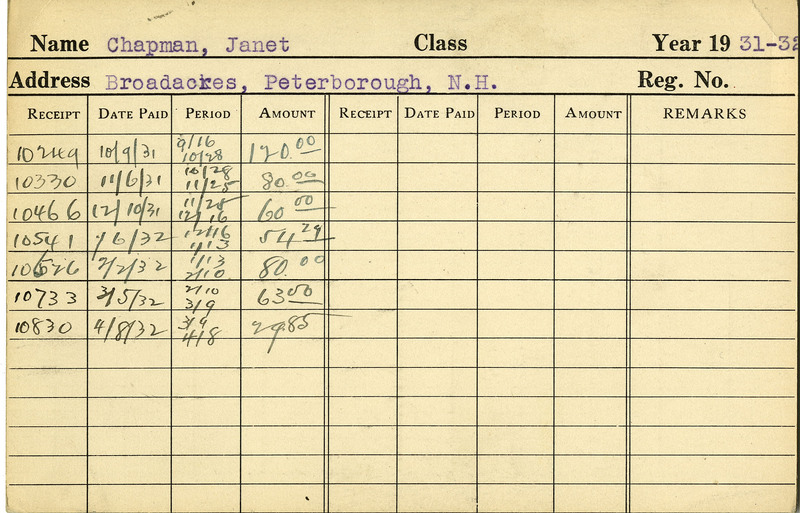 Name Chapman, Janet Class Year 19 31-32
Address Broadacres, Peterborough, N.H. Reg. No.
RECEIPT DATE PAID PERIOD AMOUNT RECEIPT DATE PAID PERIOD AMOUNT REMARKS
10249 10/9/31 9/16 10/28 120.00
10330 11/6/31 10/28 11/25 80.00
10466 12/10/31 11/25 12/16 60 00
10541 1/6/32 12/16 1/13 54 29
10626 2/2/32 1/13 2/10 80.00
10733 3/5/32 2/10 3/9 63 00
10830 4/8/32 3/9 4/8 29.85